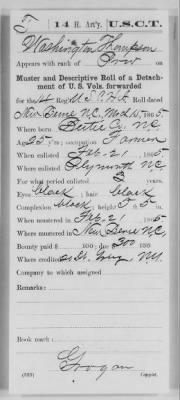 T | 14 H. Art'y. | U.S.C.T.
Washington Thompson
Appears with rank of Priv on
Muster and Descriptive Roll of a Detachment
of U. S. Vols. forwarded
for the 14 Reg't U.S.C.H.A. Roll dated
New Berne N.C. Mch 15, 1865.
Where born Pitt Co. N.C.
Age 25 y'rs; occupation Farmer
When enlisted Feb. 21, 1865.
Where enlisted Plymouth N.C.
For what period enlisted 3 years.
Eyes black; hair black
Complexion black; height 5 ft. 5 in.
When mustered in Feb. 21, 1865.
Where mustered in New Berne N.C.
Bounty paid $ 100; due $ 300 100
Where credited NY.
Company to which assigned
Remarks:
Book mark:
Grogan
(339) Copyist.